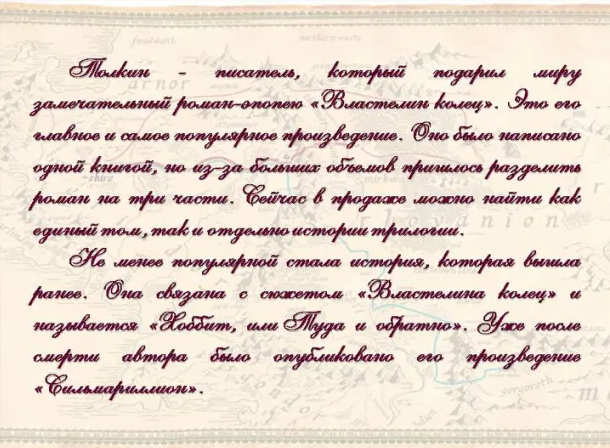 Толкин - писатель, который подарил миру
замечательный роман-эпопею «Властелин колец». Это его
главное и самое популярное произведение. Оно было написано
одной книгой, но из-за больших объемов пришлось разделить
роман на три части. Сейчас в продаже можно найти как
единый том, так и отдельно истории трилогии.
Не менее популярной стала история, которая вышла
ранее. Она связана с сюжетом «Властелина колец» и
называется «Хоббит, или Туда и обратно». Уже после
смерти автора было опубликовано его произведение
«Сильмариллион».
rhovanion
arnor
gorgoroth